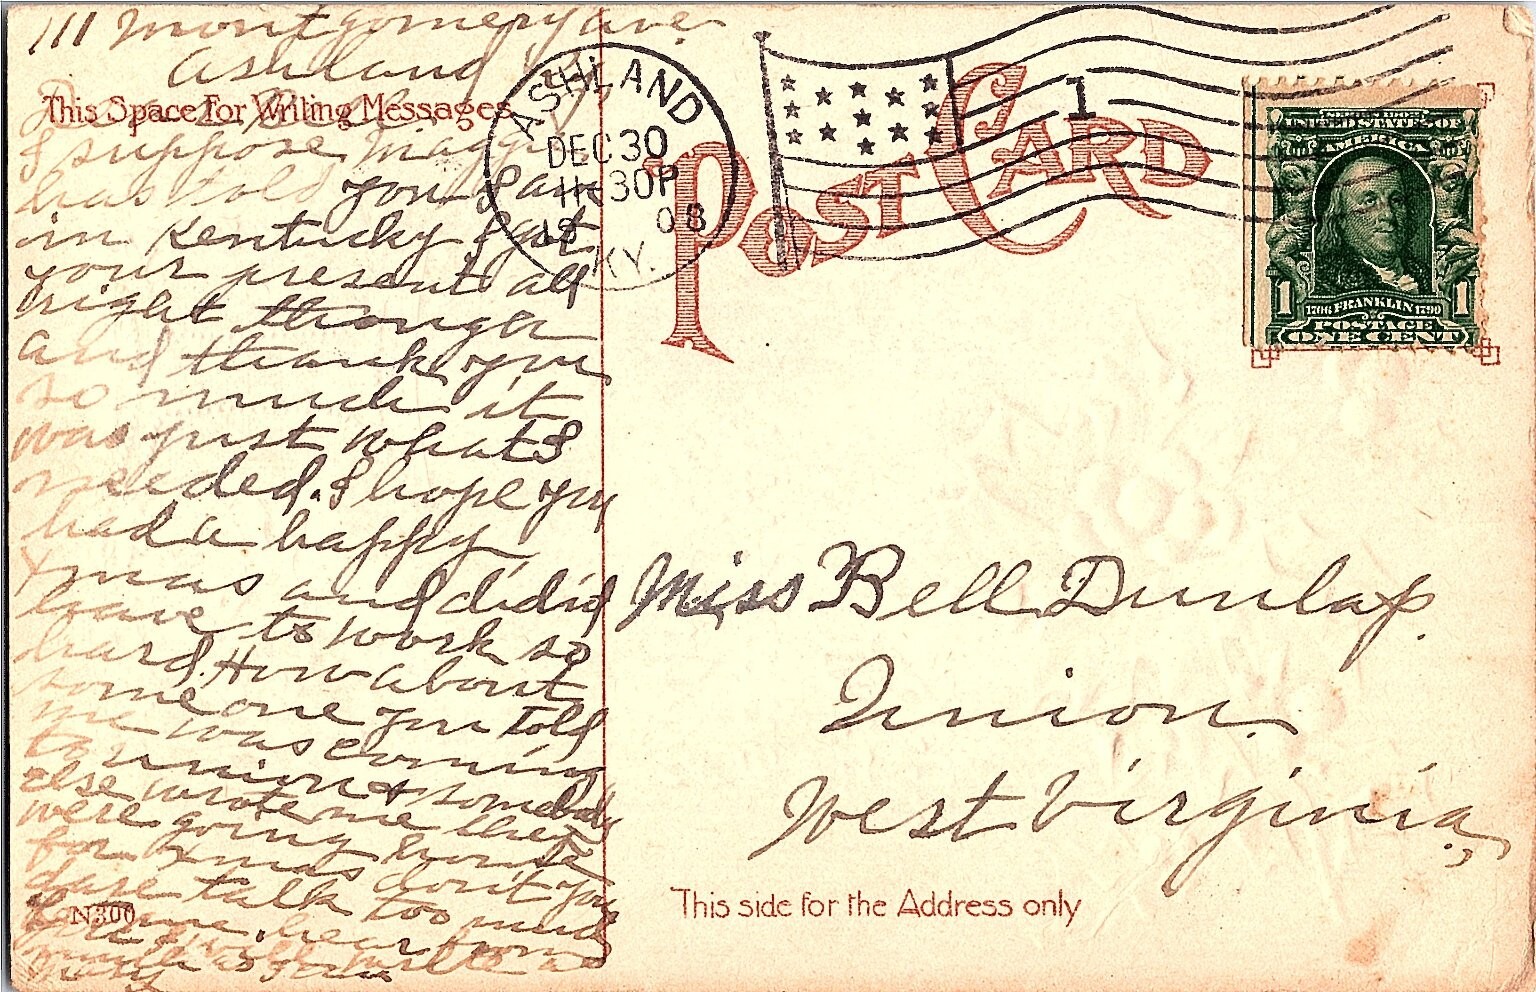 111 Montgomery ave
Ashland Ky
This Space For Writing Messages
Dear Bell
I suppose Maggie
has told you I am
in Kentucky I got
your present all
right though
and thank you
so much it
was just what I
needed. I hope you
had a happy
Xmas and didnt
have to work so
hard. How about
some one you told
me was coming
to union & somebody
else wrote me they
were going home
for Xmas don't you
dare talk too much
hear from
you will write
much as
Mary
N300
ASHLAND
DEC 30
11 30P
1908
KY.
1
POST CARD
UNITED STATES OF
AMERICA
1 1706 FRANKLIN 1790 1
POSTAGE
ONE CENT
Miss Bell Dunlap.
Union
West Virginia,
This side for the Address only